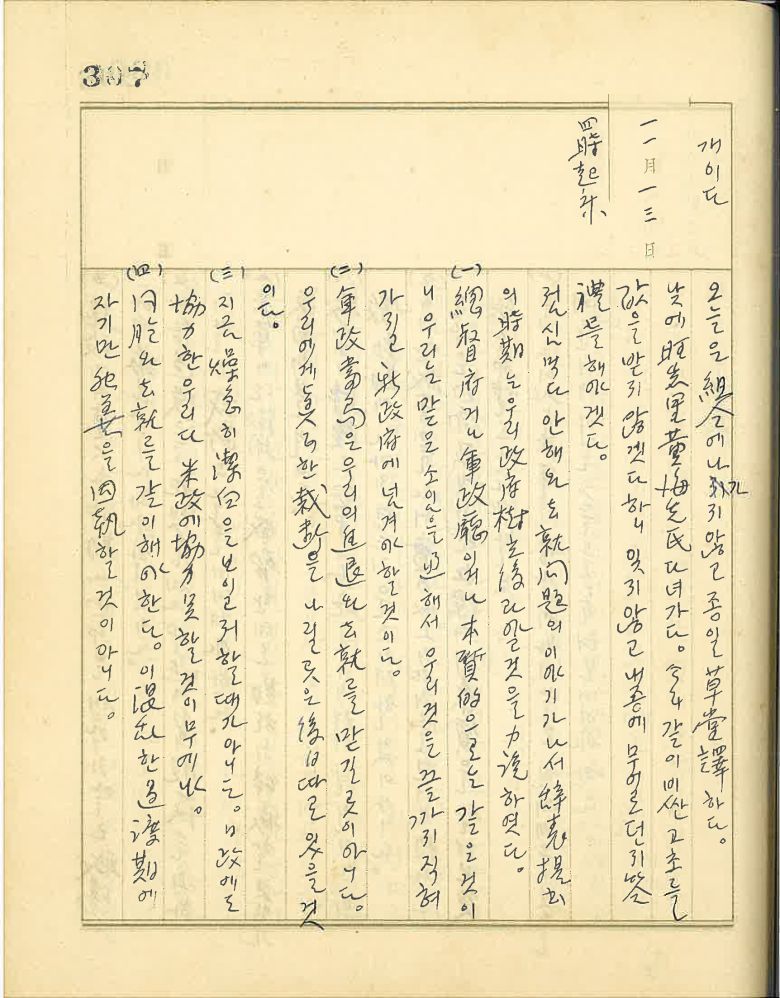 307
개이다
一一月一三日
四時起床
오늘은 組合에 나가지 않고 종일 草堂譯하다。
낮에 旺志里 黃海允氏 다녀가다。 今年 같이 비싼 고초를
값을 받지 않겟다 하니 잊지 않고 내종에 무어로던지 答
禮를 해야겟다。
점심 먹다 안해와 去就問題의 이야기가 나서 辭表提出
의 時期는 우리 政府樹立後라야 할것을 力說하엿다。
(一) 總督府거나 軍政廳이거나 本質的으로는 같은것이
니 우리는 맡은 소임을 通해서 우리것을 끝까지 직혀
가지고 新政府에 넘겨야 할것이다。
(二) 軍政當局은 우리의 進退와 去就를 맏길 곳이 아니다。
우리에게 眞正한 裁斷을 나릴 곳은 後日 따로 있을 것
이다。
(三) 지금 燥急히 潔白을 보이고저 할때가 아니다。 日政에도
協力한 우리다 米政에 協力 못할것이 무에냐。
(四) 同胞와 去就를 같이해야 한다。 이 混亂한 過渡期에
자기만 을 固執할 것이 아니다。